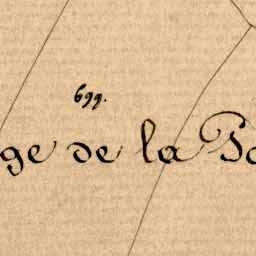 699.
ge de la Po